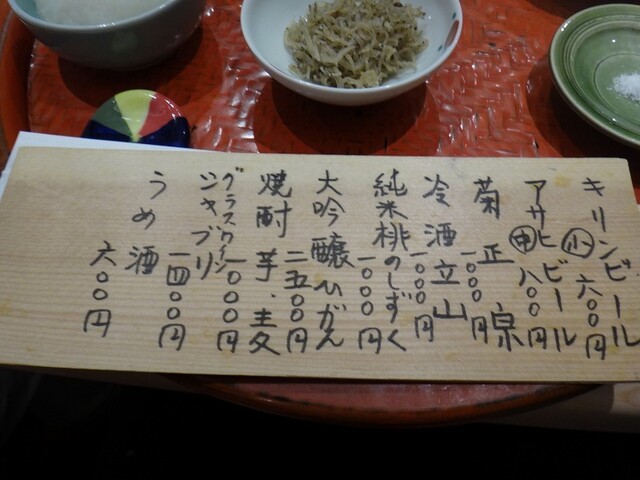 キリンビール
㊥小 六〇〇円
アサヒビール
㊥ 八〇〇円
菊正 宗
一〇〇〇円
冷酒 立山
一〇〇〇円
純米桃のしずく
一〇〇〇円
大吟醸ひがん
二五〇〇円
焼酎 芋・麦
一〇〇〇円
グラスワイン
シャブリ
一四〇〇円
うめ酒
六〇〇円